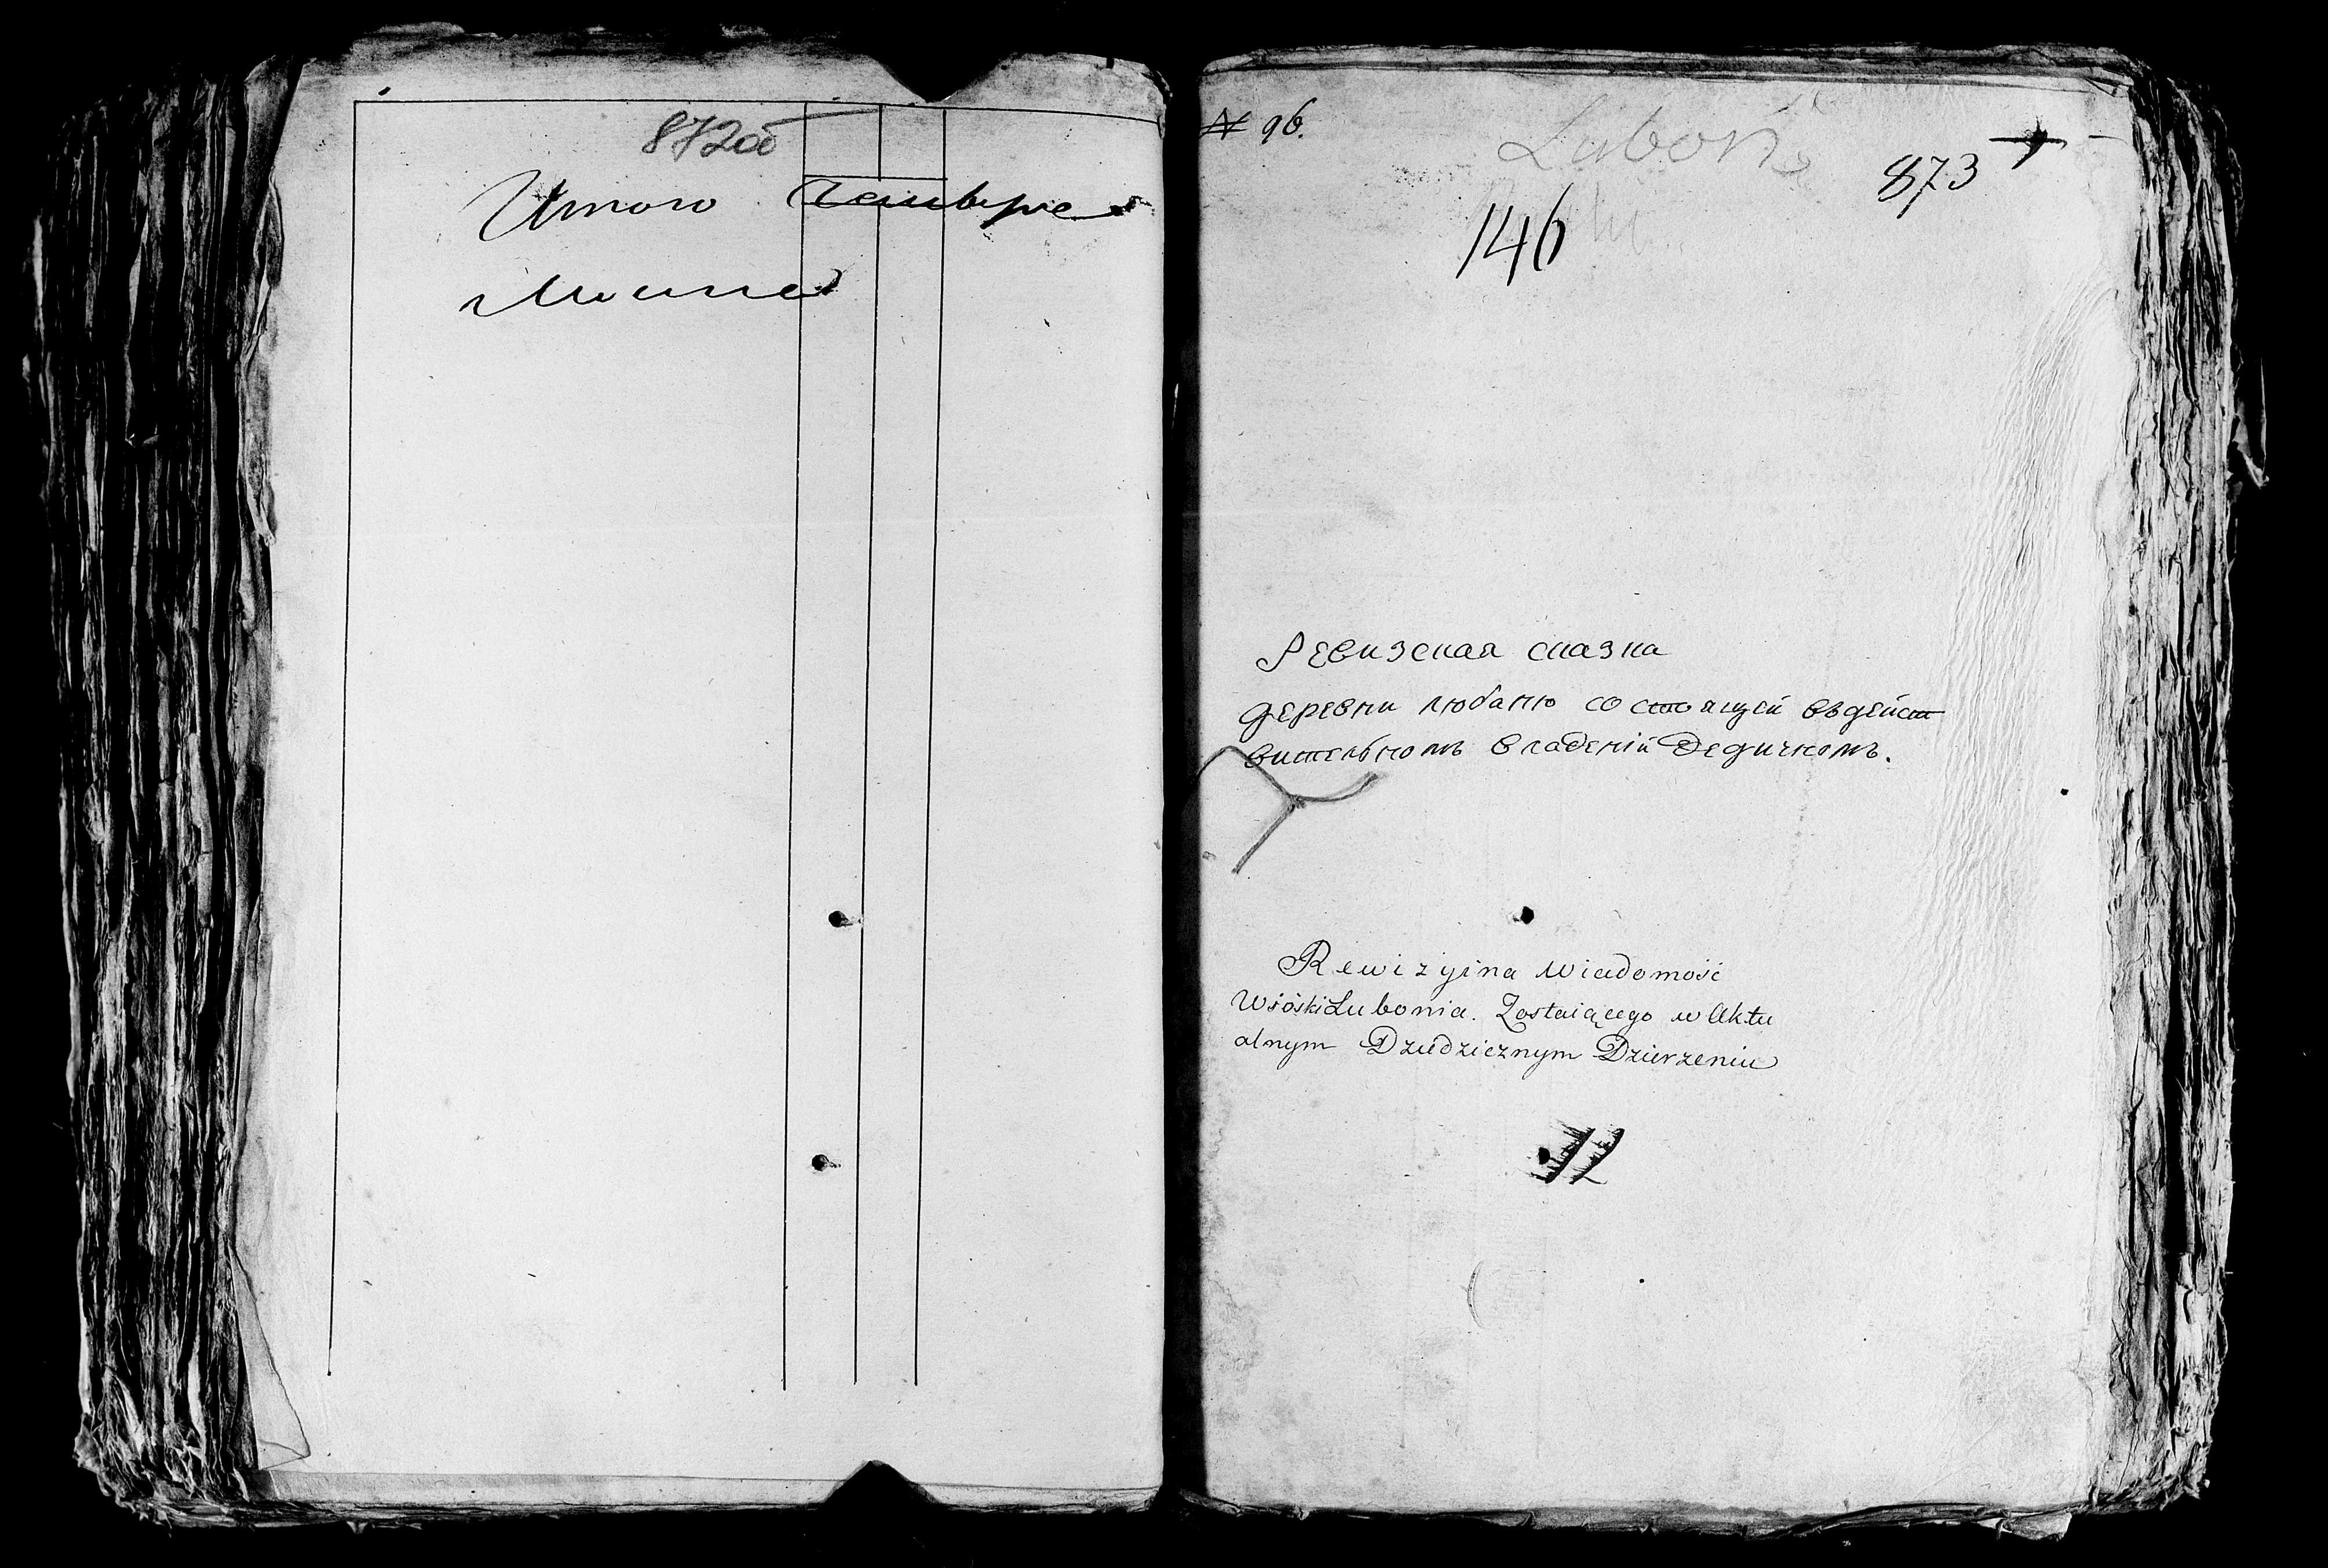 872об
Итого четыре
листа
№ 96.
Luboń
873
146
Ревизская сказка
деревни любаню состоящей въдейст
вительномъ владеній Дедичномъ.
Rewizyina Wiadomość
Wsioski Lubonia. Zostaiącego w Aktu
alnym Dziedzicznym Dzierzeniu